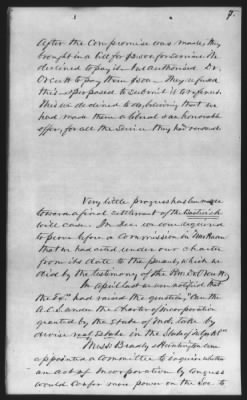 7.
After the Compromise was made, they
brought in a bill for $1000 for services. We
declined to pay it. We authorized Dr.
Orcutt to pay them $500. They refused
this & proposed to submit it to referees.
This we declined to do, believing that we
had made them a liberal & an honorable
offer for all the service they had rendered
Very little progress has been made
toward a final settlement of the Bostwick
will case. In Dec. we were required
to prove before a Commission in
that we had acted under our charter
from its date to the present, which we
did by the testimony of the Hon.
In April last we were notified that
the had raised the question, "Can the
A.C.S. under the Charter of Incorporation
granted by the State of Md., take by
devise real estate in the State of N.York?"
Mess Bradly & Huntington were
appointed a Committee to enquire whether
"an act of Incorporation by Congress
would confer more power on the Soc. to